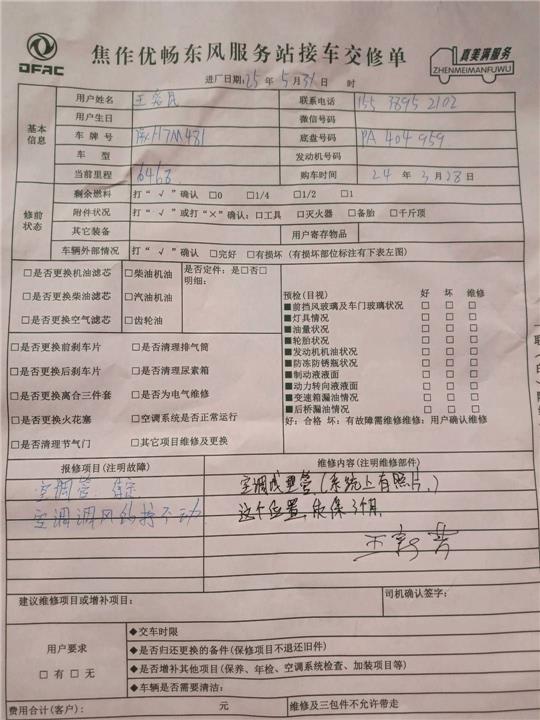 DFAC
焦作优畅东风服务站接车交修单
真美满服务
ZHENMEIMANFUWU
进厂日期：25 年 5 月 31 日 时
基本信息
用户姓名 王 联系电话 155 3895 2102
用户生日 微信号码
车 牌 号 H7M481 底盘号码 PA 404959
车 型 发动机号码
当前里程 6468 购车时间 24 年 3 月 28 日
修前状态
剩余燃料 打“√”确认 □0 □1/4 □1/2 □1
附件状况 打“√”或打“×”确认：□工具 □灭火器 □备胎 □千斤顶
其它装备 用户寄存物品
车辆外部情况 打“√”确认 □完好 □有损坏（有损坏部位标注有下表左图）
□是否更换机油滤芯 □柴油机油 是否定件：是□否□
明细：
□是否更换柴油滤芯 □汽油机油
□是否更换空气滤芯 □齿轮油
□是否更换前刹车片 □是否清理排气筒
□是否更换后刹车片 □是否清理尿素箱
□是否更换离合三件套 □是否为电气维修
□是否更换火花塞 □空调系统是否正常运行
□是否清理节气门 □其它项目维修及更换
预检（目视） 好 坏 维修
■前挡风玻璃及车门玻璃状况 □ □ □
■灯具情况 □ □ □
■油量状况 □ □ □
■轮胎状况 □ □ □
■发动机机油状况 □ □ □
■防冻防锈瓶状况 □ □ □
■制动液液面 □ □ □
■动力转向液液面 □ □ □
■变速箱漏油情况 □ □ □
■后桥漏油情况 □ □ □
好：合格 坏：有故障需维修维修：用户确认维修
报修项目（注明故障） 维修内容（注明维修部件）
空调管 空调管（系统上有照片）
空调调风 不动 这个位置 保3个月
王
建议维修项目或增补项目： 司机确认签字：
用户要求
□有 □无
◆交车时限
◆是否归还更换的备件（保修项目不退还旧件）
◆是否增补其他项目（保养、年检、空调系统检查、加装项目等）
◆车辆是否需要清洁：
费用合计（客户）： 元 维修及三包件不允许带走